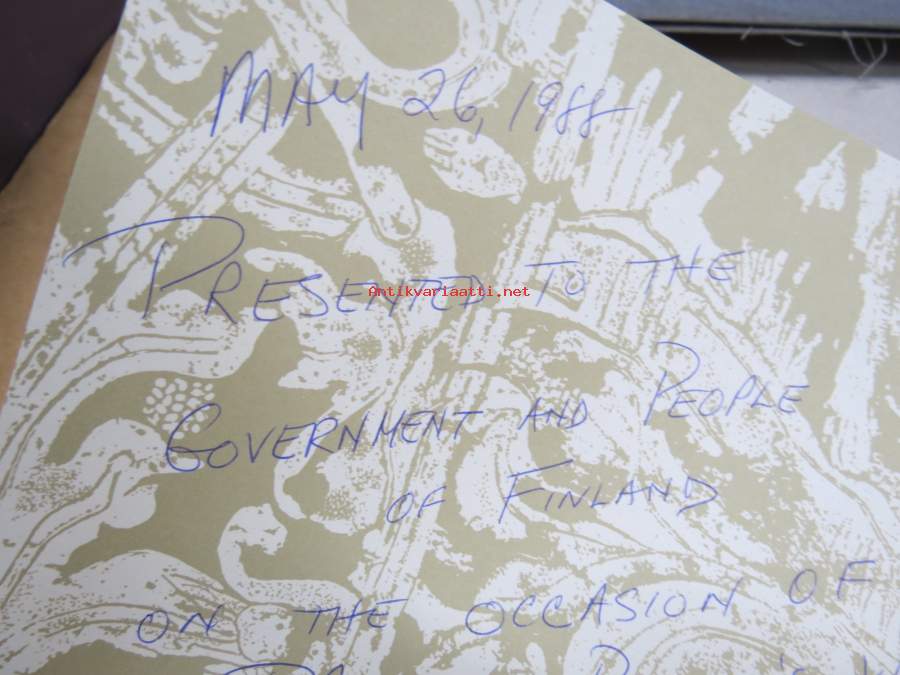 MAY 26, 1988
PRESENTED TO THE
Antikvariaatti.net
GOVERNMENT AND PEOPLE
OF FINLAND
ON THE OCCASION OF